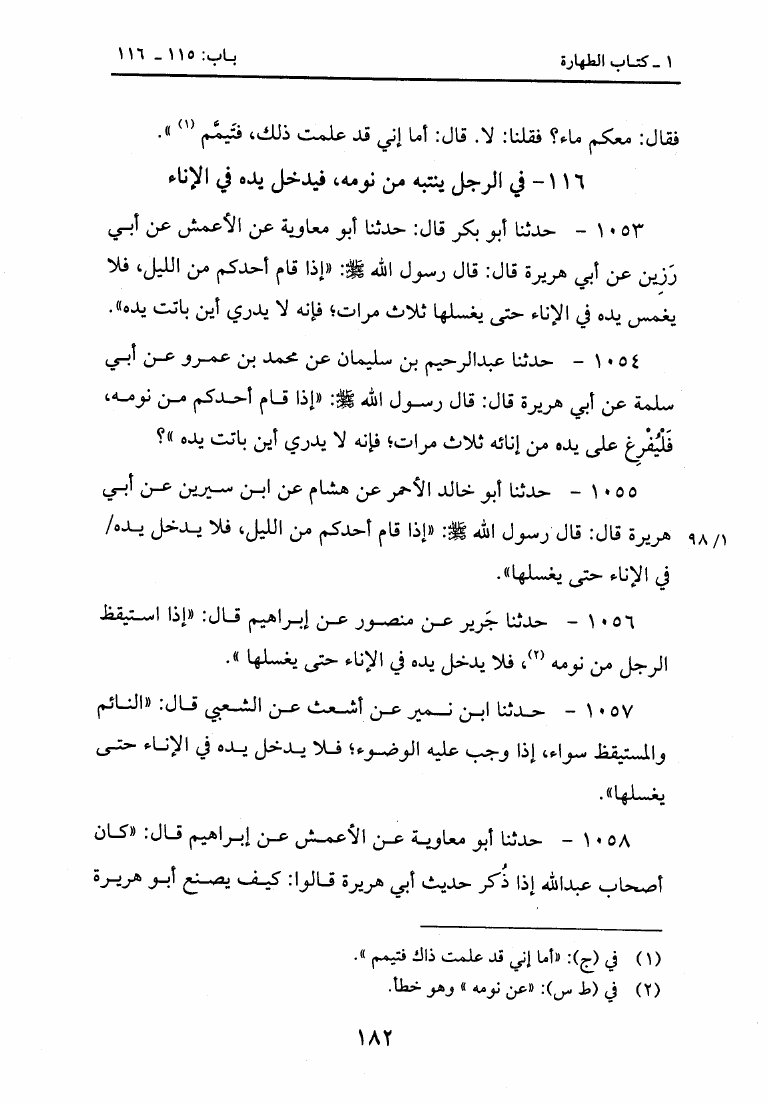 ١ ـ كتـاب الطهارة
بـاب: ١١٥ ـ ١١٦
فقال: معكم ماء؟ فقلنا: لا. قال: أما إني قد علمت ذلك، فتَيمَّم (١) ».
١١٦- في الرجل ينتبه من نومه، فيدخل يده في الإناء
١٠٥٣ - حدثنا أبو بكر قال: حدثنا أبو معاوية عن الأعمش عن أبـي
رَزِين عن أبي هريرة قال: قال رسول الله ﷺ: «إذا قام أحدكم من الليل، فلا
يغمس يده في الإناء حتى يغسلها ثلاث مرات؛ فإنه لا يدري أين باتت يده».
١٠٥٤ - حدثنا عبدالرحيم بن سليمان عن محمد بن عمـرو عـن أبـي
سلمة عن أبي هريرة قال: قال رسـول الله ﷺ: «إذا قـام أحـدكم مـن نومـه،
فَلْيُفْرِغ على يده من إنائه ثلاث مرات؛ فإنه لا يدري أين باتت يده »؟
١٠٥٥ - حدثنا أبو خالد الأحمر عن هشام عن ابـن سـيرين عـن أبـي
هريرة قال: قال رسول الله ﷺ: «إذا قام أحدكم من الليل، فلا يـدخل يـده/
٩٨/١
في الإناء حتى يغسلها».
١٠٥٦ - حدثنا جَرير عـن منصـور عـن إبـراهيم قـال: «إذا اسـتيقظ
الرجل من نومه (٢)، فلا يدخل يده في الإناء حتى يغسلها ».
١٠٥٧ - حـدثنا ابـن نـمير عـن أشـعث عـن الشـعبي قـال: «النـائم
والمستيقظ سواء، إذا وجب عليه الوضـوء؛ فـلا يـدخل يـده في الإنـاء حتـى
يغسلها».
١٠٥٨ - حدثنا أبو معاويـة عـن الأعمـش عـن إبـراهيم قـال: «كـان
أصحاب عبدالله إذا ذُكر حديث أبي هريرة قـالوا: كيـف يصـنع أبـو هريـرة
(١) في (ج): «أما إني قد علمت ذاك فتيمم ».
(٢) في (ط س): «عن نومه » وهو خطأ.
١٨٢